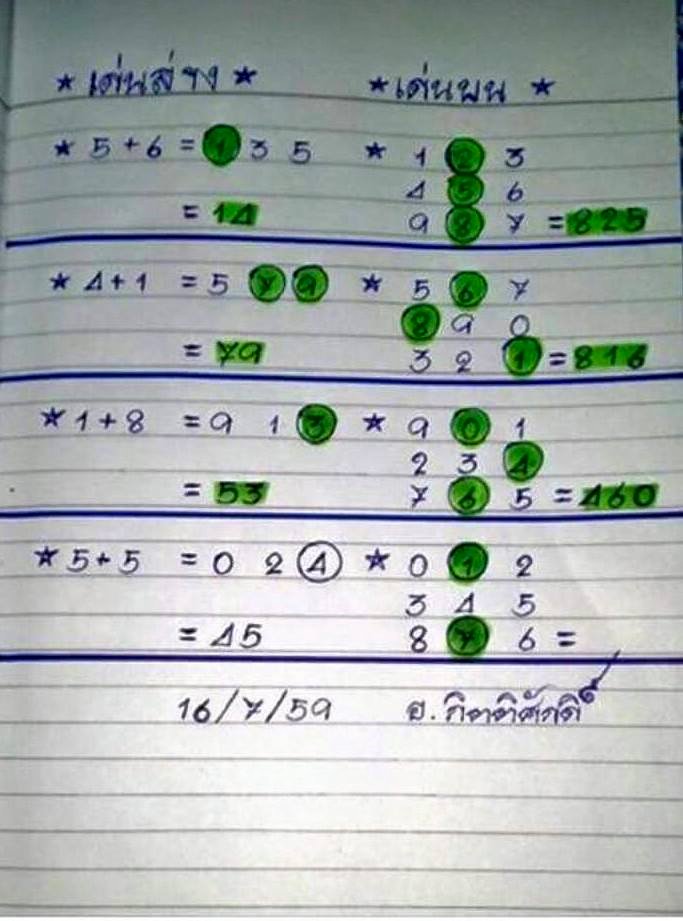 ★ เด่นล่าง ★ ★ เด่นบน ★
★ 5 + 6 = 1 3 5 ★ 1 2 3
4 5 6
= 14 9 8 7 = 825
★ 4 + 1 = 5 7 9 ★ 5 6 7
8 9 0
= 79 3 2 1 = 816
★ 1 + 8 = 9 1 3 ★ 9 0 1
2 3 4
= 53 7 6 5 = 460
★ 5 + 5 = 0 2 4 ★ 0 1 2
3 4 5
= 45 8 7 6 =
16/7/59 อ. กิตติศักดิ์